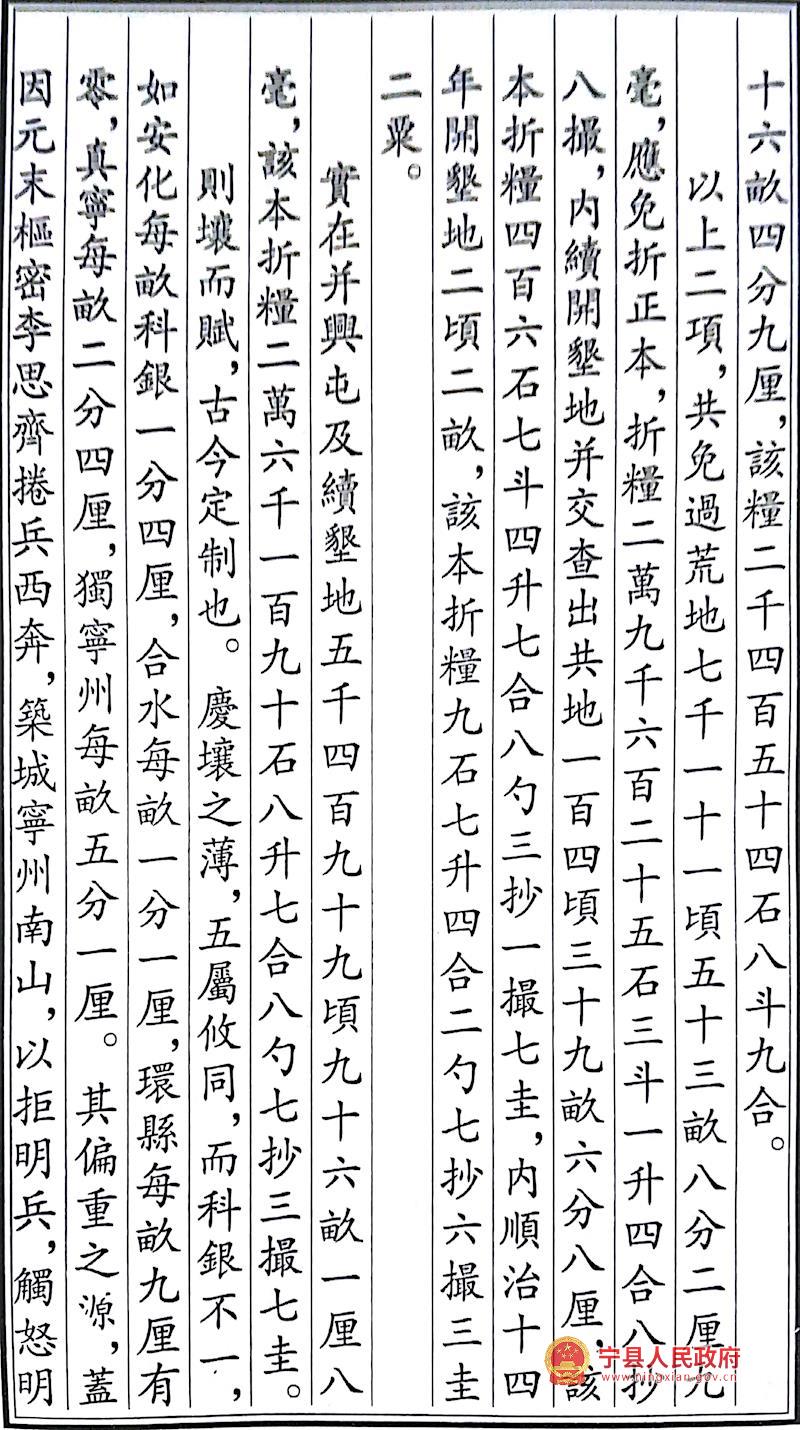 十六畝四分九厘，該糧二千四百五十四石八斗九合。
以上二項，共免過荒地七千一十一頃五十三畝八分二厘九
毫，應免折正本，折糧二萬九千六百二十五石三斗一升四合八抄
八撮，内續開墾地并交查出共地一百四頃三十九畝六分八厘，該
本折糧四百六石七斗四升七合八勺三抄一撮七圭，内順治十四
年開墾地二頃二畝，該本折糧九石七升四合二勺七抄六撮三圭
二粟。
實在并興屯及續墾地五千四百九十九頃九十六畝一厘八
毫，該本折糧二萬六千一百九十石八升七合八勺七抄三撮七圭。
則壤而賦，古今定制也。慶壤之薄，五屬攸同，而科銀不一，
如安化每畝科銀一分四厘，合水每畝一分一厘，環縣每畝九厘有
零，真寧每畝二分四厘，獨寧州每畝五分一厘。其偏重之源，蓋
因元末樞密李思齊捲兵西奔，築城寧州南山，以拒明兵，觸怒明
宁县人民政府
www.ningxian.gov.cn